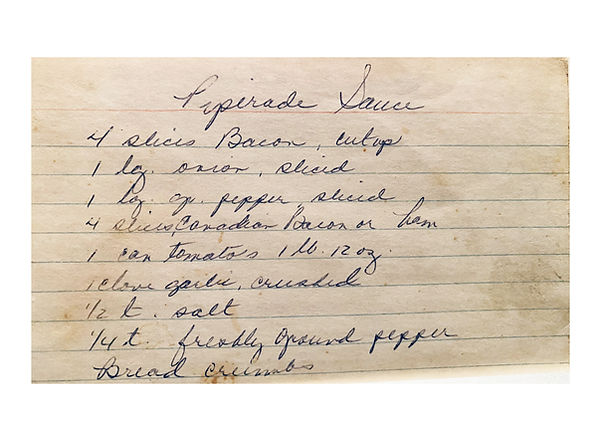 Piperade Sauce
4 slices Bacon, cut up
1 lg. onion, sliced
1 lg. gr. pepper sliced
4 slices Canadian Bacon or ham
1 can tomato's 1 lb. 12 oz.
1 clove garlic, crushed
1/2 t. salt
1/4 t. freshly ground pepper
Bread crumbs